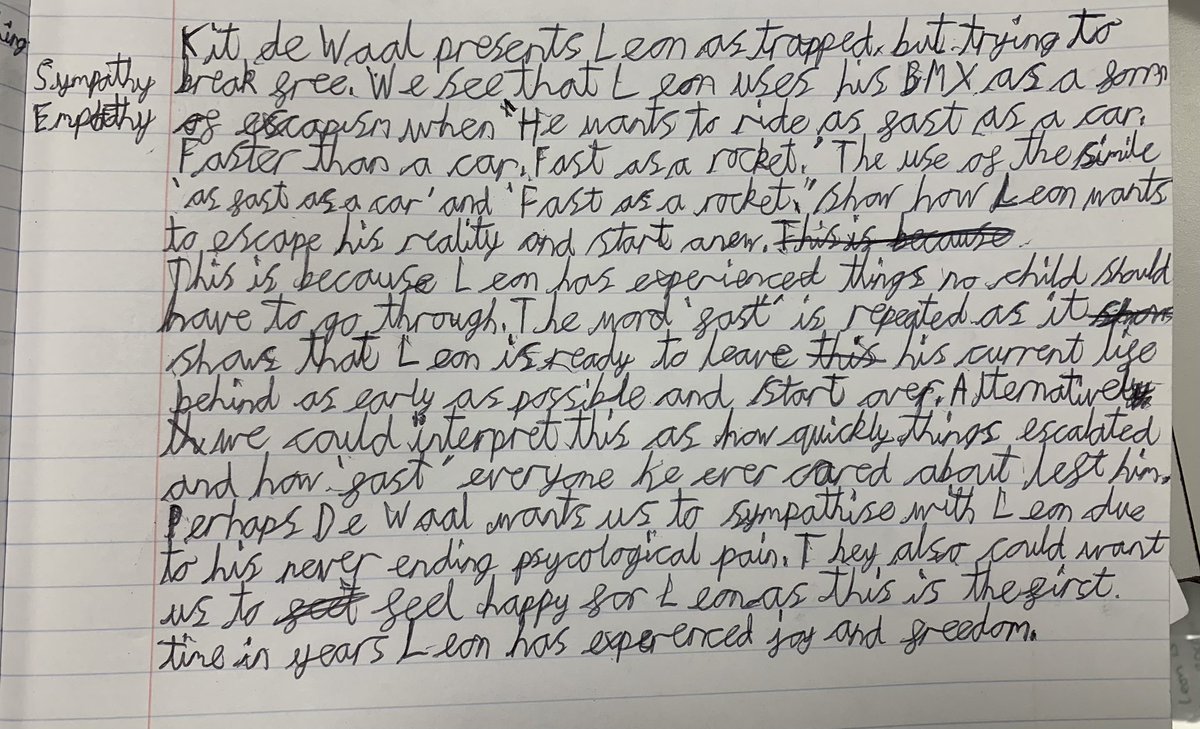 ing
Sympathy
Empathy
Kit de Waal presents Leon as trapped, but trying to
break free. We see that Leon uses his BMX as a form
of escapism when "He wants to ride as fast as a car.
Faster than a car. Fast as a rocket.' The use of the simile
'as fast as a car' and 'Fast as a rocket." show how Leon wants
to escape his reality and start anew. This is because
This is because Leon has experienced things no child should
have to go through. The word 'fast" is repeated as it show
shows that Leon is ready to leave this his current life
behind as early as possible and start over. Alternatively
we could interpret this as how quickly things escalated
and how 'fast" everyone he ever cared about left him.
Perhaps De Waal wants us to sympathise with Leon due
to his never ending psycological pain. They also could want
us to feel happy for Leon as this is the first
time in years Leon has experenced joy and freedom.
Leon